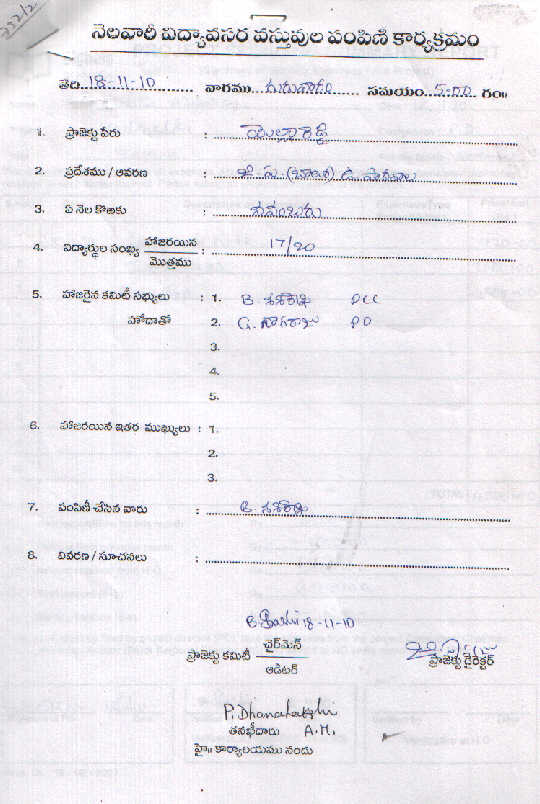 2212
నెలవారీ విద్యావసర వస్తువుల పంపిణి కార్యక్రమం
తెది. 18-11-10 వారము గురువారం సమయం. 5:00 గం॥
1. ప్రాజెక్టు పేరు : యెల్లారెడ్డి
2. ప్రదేశము / ఆవరణ :
3. ఏ నెల కొఱకు : నవంబరు
4. విద్యార్థుల సంఖ్య హాజరయిన : 17/20
మొత్తము
5. హాజరైన కమిటీ సభ్యులు : 1. B. శశిరాణి PCC
హోదాతో 2. G. నాగరాజు PD
3.
4.
5.
6. హాజరయిన ఇతర ముఖ్యులు : 1.
2.
3.
7. పంపిణీ చేసిన వారు : B. శశిరాణి
8. వివరణ / సూచనలు :
B. Sashi 18-11-10
ప్రాజెక్టు కమిటీ ఛైర్‌మెన్
ఆడిటర్
ప్రాజెక్టు డైరెక్టర్
P. Dhanalakshmi
తనఖీదారు A.M.
హై॥ కార్యాలయము నందు